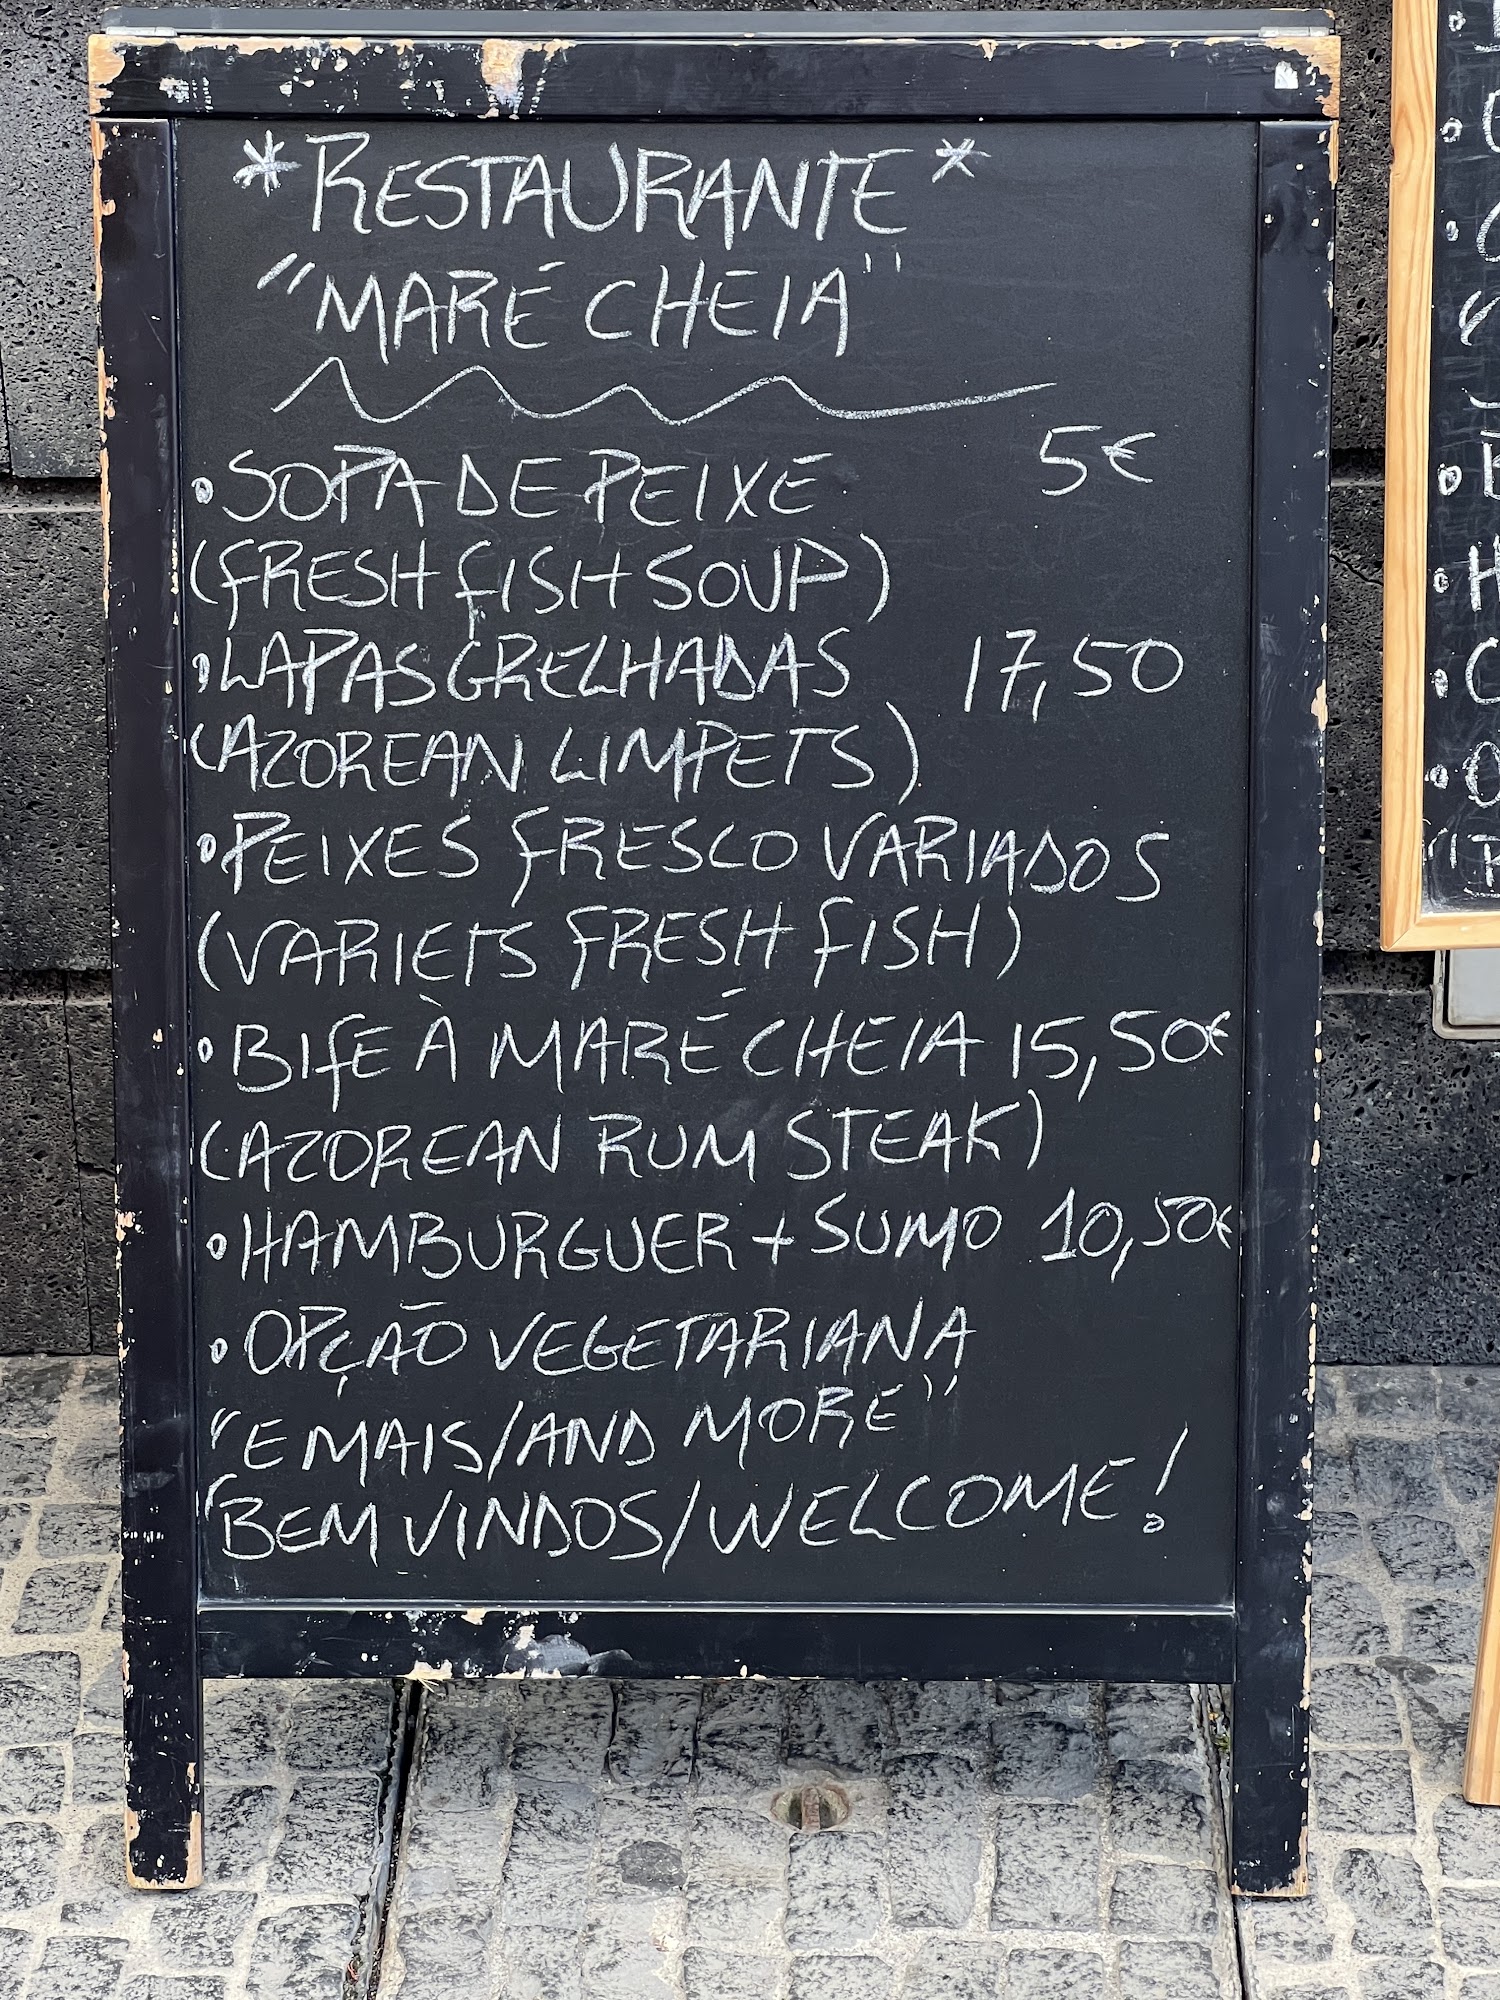 *RESTAURANTE*
"MARÉ CHEIA"
•SOPA DE PEIXE 5€
(FRESH FISH SOUP)
•LAPAS GRELHADAS 17,50
(AZOREAN LIMPETS)
•PEIXES FRESCO VARIADOS
(VARIETS FRESH FISH)
•BIFE À MARÉ CHEIA 15,50€
(AZOREAN RUM STEAK)
•HAMBURGUER + SUMO 10,50€
•OPÇÃO VEGETARIANA
"E MAIS/AND MORE"
BEM VINDOS/WELCOME!